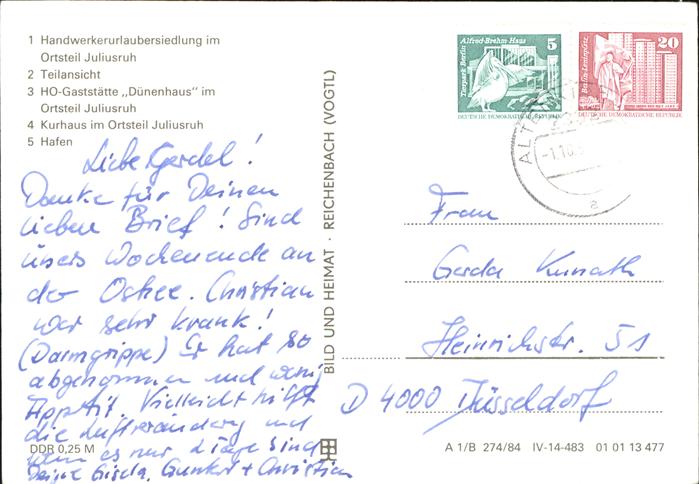 1 Handwerkerurlaubersiedlung im
Ortsteil Juliusruh
2 Teilansicht
3 HO-Gaststätte „Dünenhaus“ im
Ortsteil Juliusruh
4 Kurhaus im Ortsteil Juliusruh
5 Hafen
Liebe Gerdel!
Danke für Deinen
lieben Brief! Sind
übers Wochenende an
der Ostsee. Christian
war sehr krank!
(Darmgrippe) Er hat so
abgenommen und wenig
Appetit. Vielleicht hilft
die Luftveränderung und
wenn es nur 2 Tage sind
Deine Gisela, Gunkel + Christian
DDR 0,25 M
BILD UND HEIMAT · REICHENBACH (VOGTL)
Tierpark Berlin Alfred-Brehm-Haus 5
DEUTSCHE DEMOKRATISCHE REPUBLIK
Berlin-Leninplatz 20
DEUTSCHE DEMOKRATISCHE REPUBLIK
-1.10.
a
Frau
Gerda Kunath
Heinrichstr. 51
D 4000 Düsseldorf
A 1/B 274/84 IV-14-483 01 01 13 477